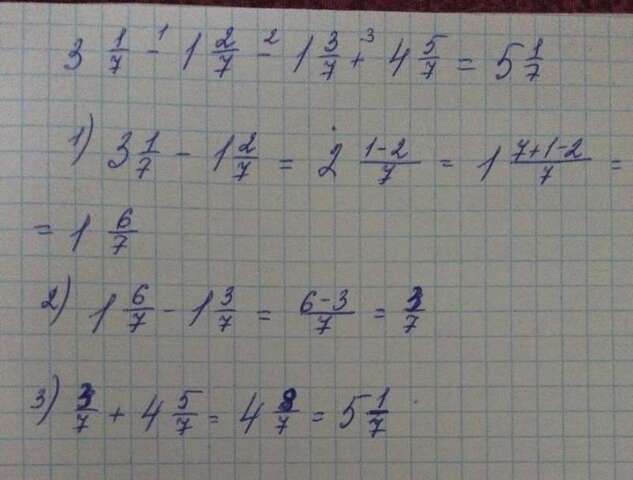 3 1/7 -¹ 1 2/7 -² 1 3/7 +³ 4 5/7 = 5 1/7
1) 3 1/7 - 1 2/7 = 2 (1-2)/7 = 1 (7+1-2)/7 =
= 1 6/7
2) 1 6/7 - 1 3/7 = (6-3)/7 = 3/7
3) 3/7 + 4 5/7 = 4 8/7 = 5 1/7